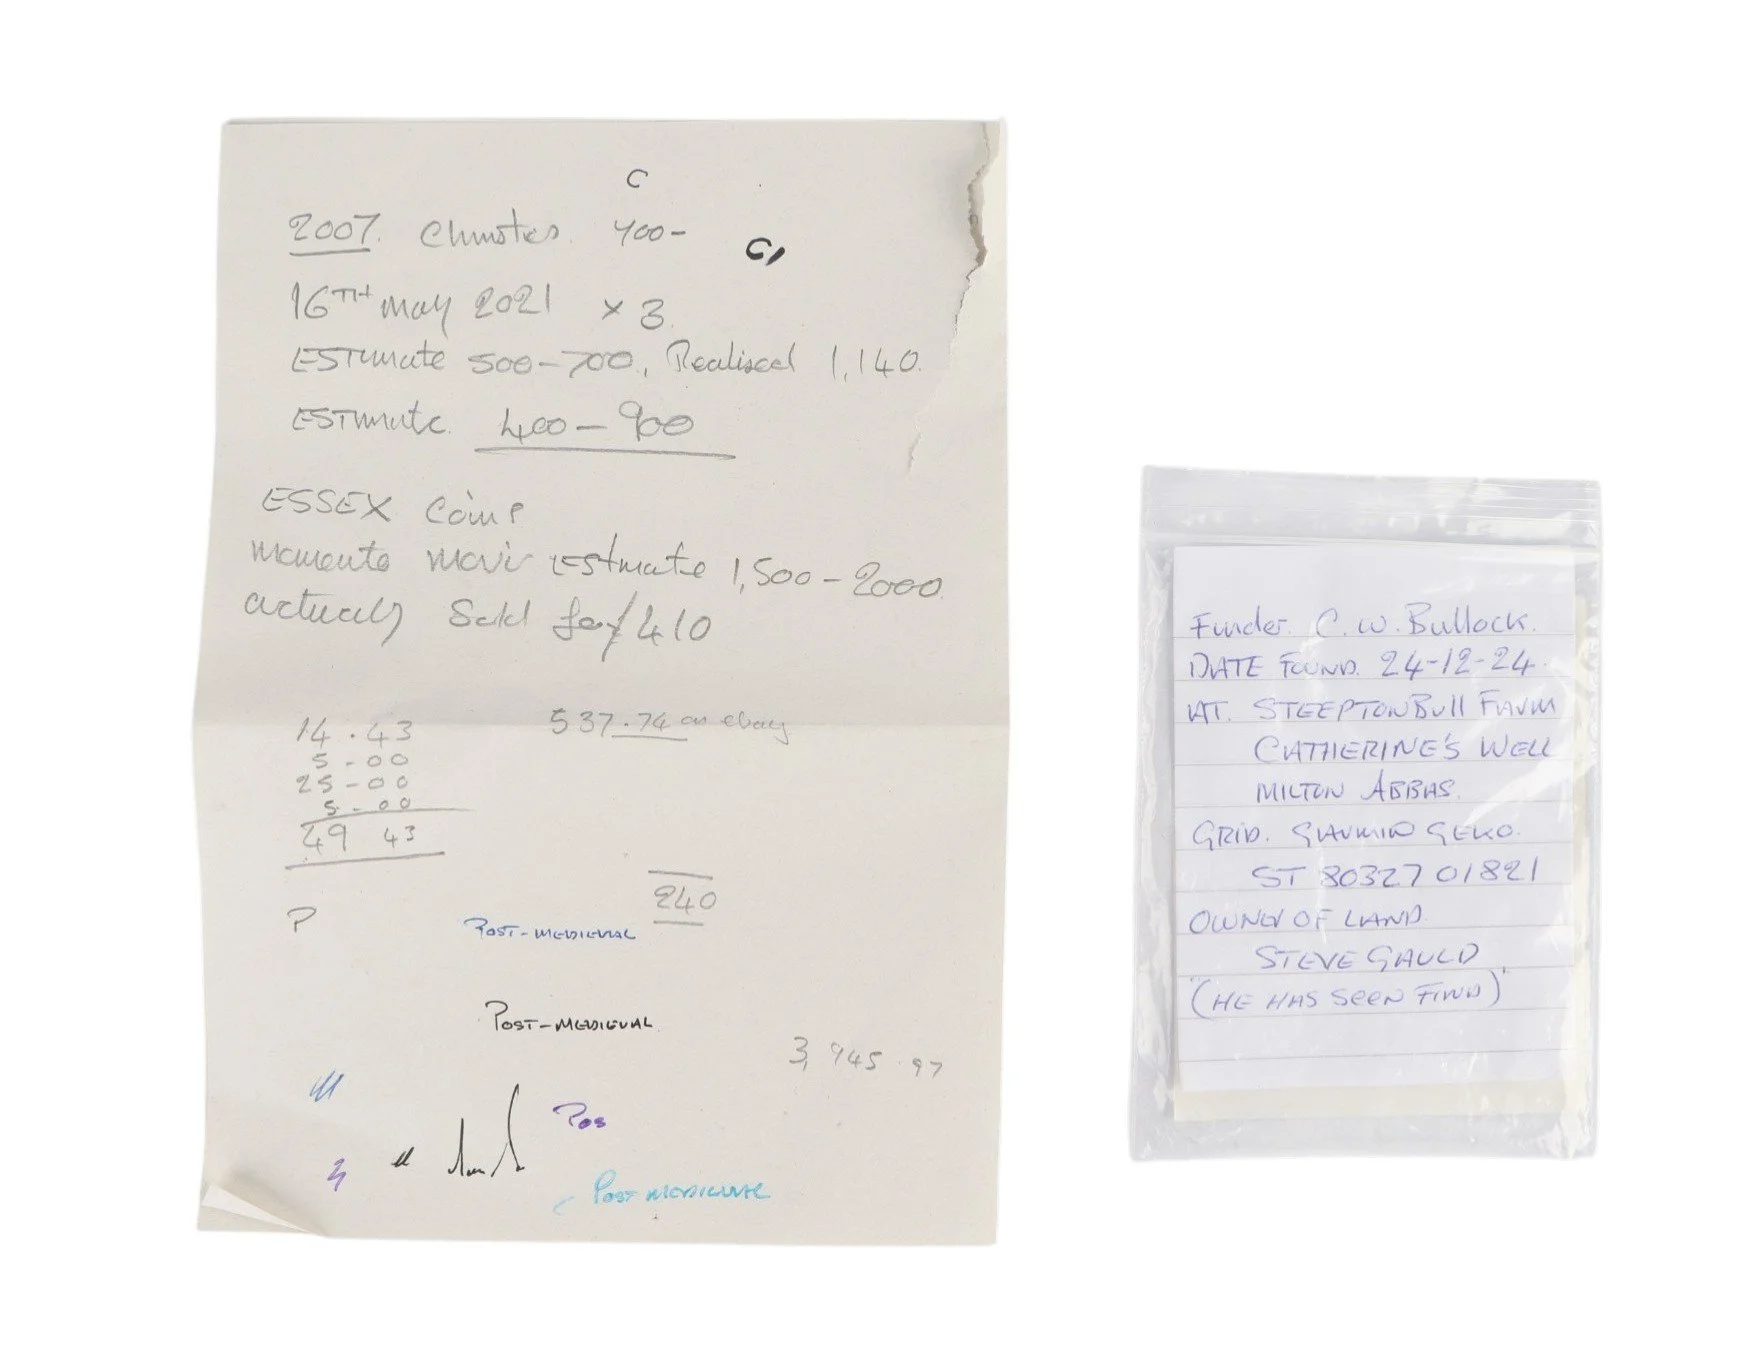 C
2007. Christies. 400-
C,
16TH may 2021 × 3.
ESTimate 500-700, Realised 1,140.
ESTimate. 400-900
ESSEX Coin
momento mori Estimate 1,500-2000.
actually Sold for 410
537.74 on ebay
14.43
5-00
25-00
5-00
49 43
240
P
POST-MEDIEVAL
POST-MEDIEVAL
3, 945.97
Pos
POST MEDIEVAL
Finder. C. W. Bullock.
DATE FOUND. 24-12-24.
AT. STEEPTONBull FARM
CATHERINE'S WELL
MILTON ABBAS.
GRID. GARMIN GEKO.
ST 80327 01821
OWNER OF LAND.
STEVE GAULD
(HE HAS SEEN FIND)